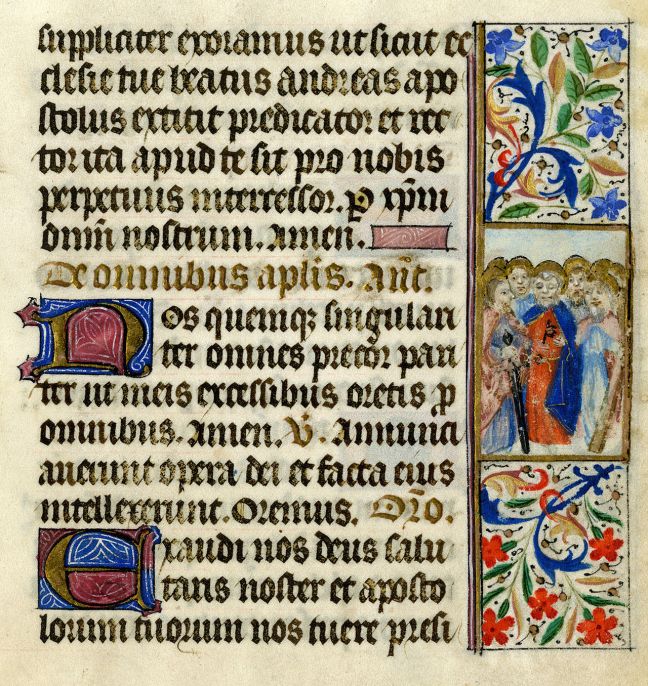 suppliciter exoramus ut sicut ec
clesie tue beatus andreas apo
stolus extitit predicator et rec
tor ita apud te sit pro nobis
perpetuus intercessor. ꝑ xp̄m
dn̄m nostrum. Amen.
De omnibus aplīs. Ant̄.
Nos quemqꝫ singulari
ter omnes precor pari
ter ut meis excessibus oretis ꝓ
omnibus. Amen. V̄. Annunci
auerunt opera dei et facta eius
intellexerunt. Oremus. Or̄o.
Exaudi nos deus salu
taris noster et aposto
lorum tuorum nos tuere presi